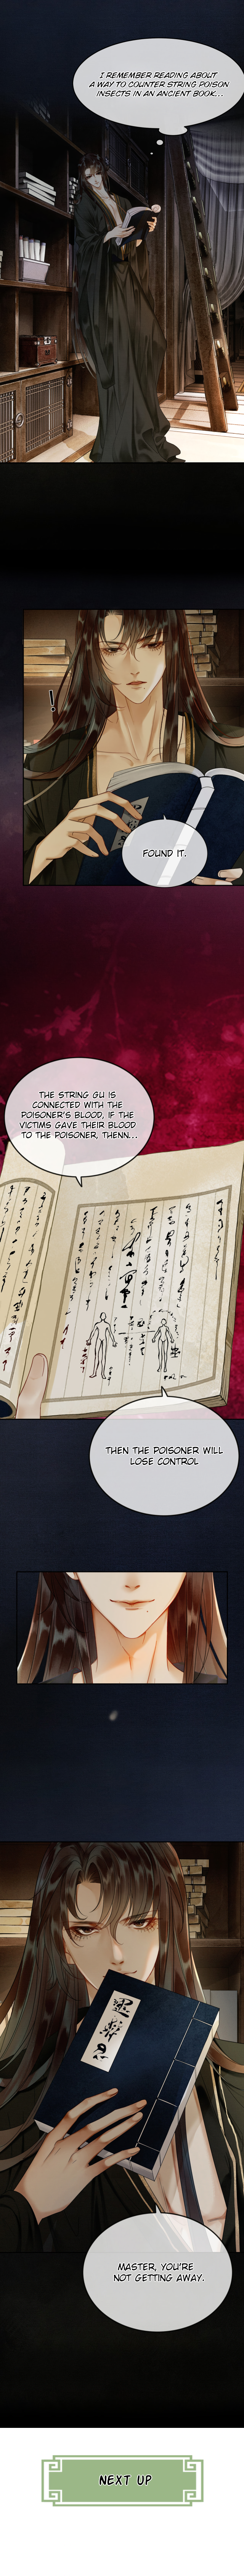 I REMEMBER READING ABOUT
A WAY TO COUNTER STRING POISON
INSECTS IN AN ANCIENT BOOK...
!
FOUND IT.
THE STRING GU IS
CONNECTED WITH THE
POISONER'S BLOOD, IF THE
VICTIMS GAVE THEIR BLOOD
TO THE POISONER, THENN...
THEN THE POISONER WILL
LOSE CONTROL
MASTER, YOU'RE
NOT GETTING AWAY.
NEXT UP